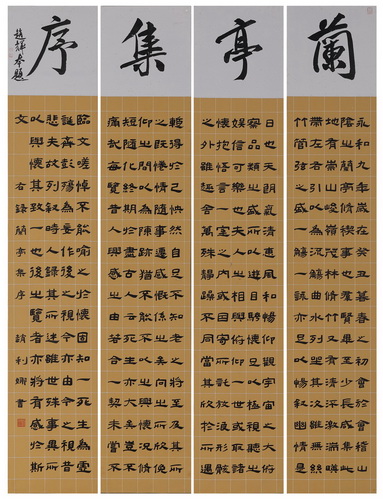 蘭亭集序
永和九年歲在癸丑暮春之初會於會稽山
陰之蘭亭脩稧事也羣賢畢至少長咸集此
地有崇山峻領茂林脩竹又有清流激湍映
帶左右引以為流觴曲水列坐其次雖無絲
竹管弦之盛一觴一詠亦足以暢敘幽情是
日也天朗氣清惠風和暢仰觀宇宙之大俯
察品類之盛所以遊目騁懷足以極視聽之
娛信可樂也夫人之相與俯仰一世或取諸
懷抱悟言一室之內或因寄所託放浪形骸
之外雖趣舍萬殊靜躁不同當其欣於所遇
暫得於己快然自足不知老之將至及其所
之既惓情隨事遷感慨係之矣向之所欣俛
仰之間以為陳迹猶不能不以之興懷況脩
短隨化終期於盡古人云死生亦大矣豈不
痛哉每覽昔人興感之由若合一契未嘗不
臨文嗟悼不能喻之於懷固知一死生為虛
誕齊彭殤為妄作後之視今亦由今之視昔
悲夫故列敘時人錄其所述雖世殊事異所
以興懷其致一也後之覽者亦將有感於斯
文 右錄蘭亭集序 趙利娜書
趙輝奉題